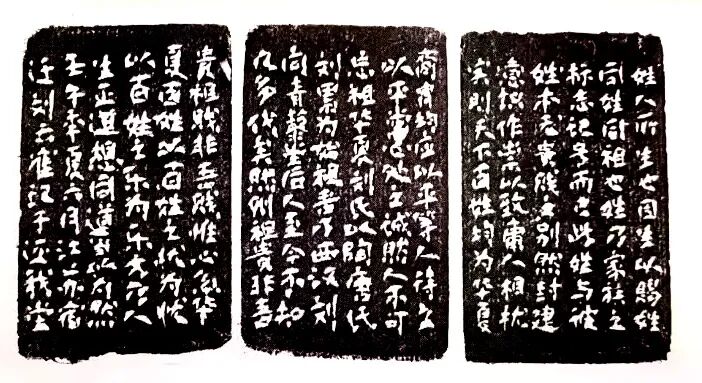 姓人所生也因生以賜姓
同姓同祖也姓乃家族之
标志记号而已此姓与彼
姓本无貴贱之别然封建
意识作祟以致庸人相扰
实则天下百姓均为华夏
裔胄均应以平等人待之
以平常心处之诚然人不可
忘祖华夏刘氏以陶唐氏
刘累为始祖者乃西汉刘
向青藜堂后人至今不知
凡多代矣然則祖貴非吾
貴祖贱非吾贱惟心系华
夏因姓以百姓之忧为忧
以百姓之乐为乐 人
生正道想同道者以为然
壬午季夏六月江亦
刻 旧记于 我堂